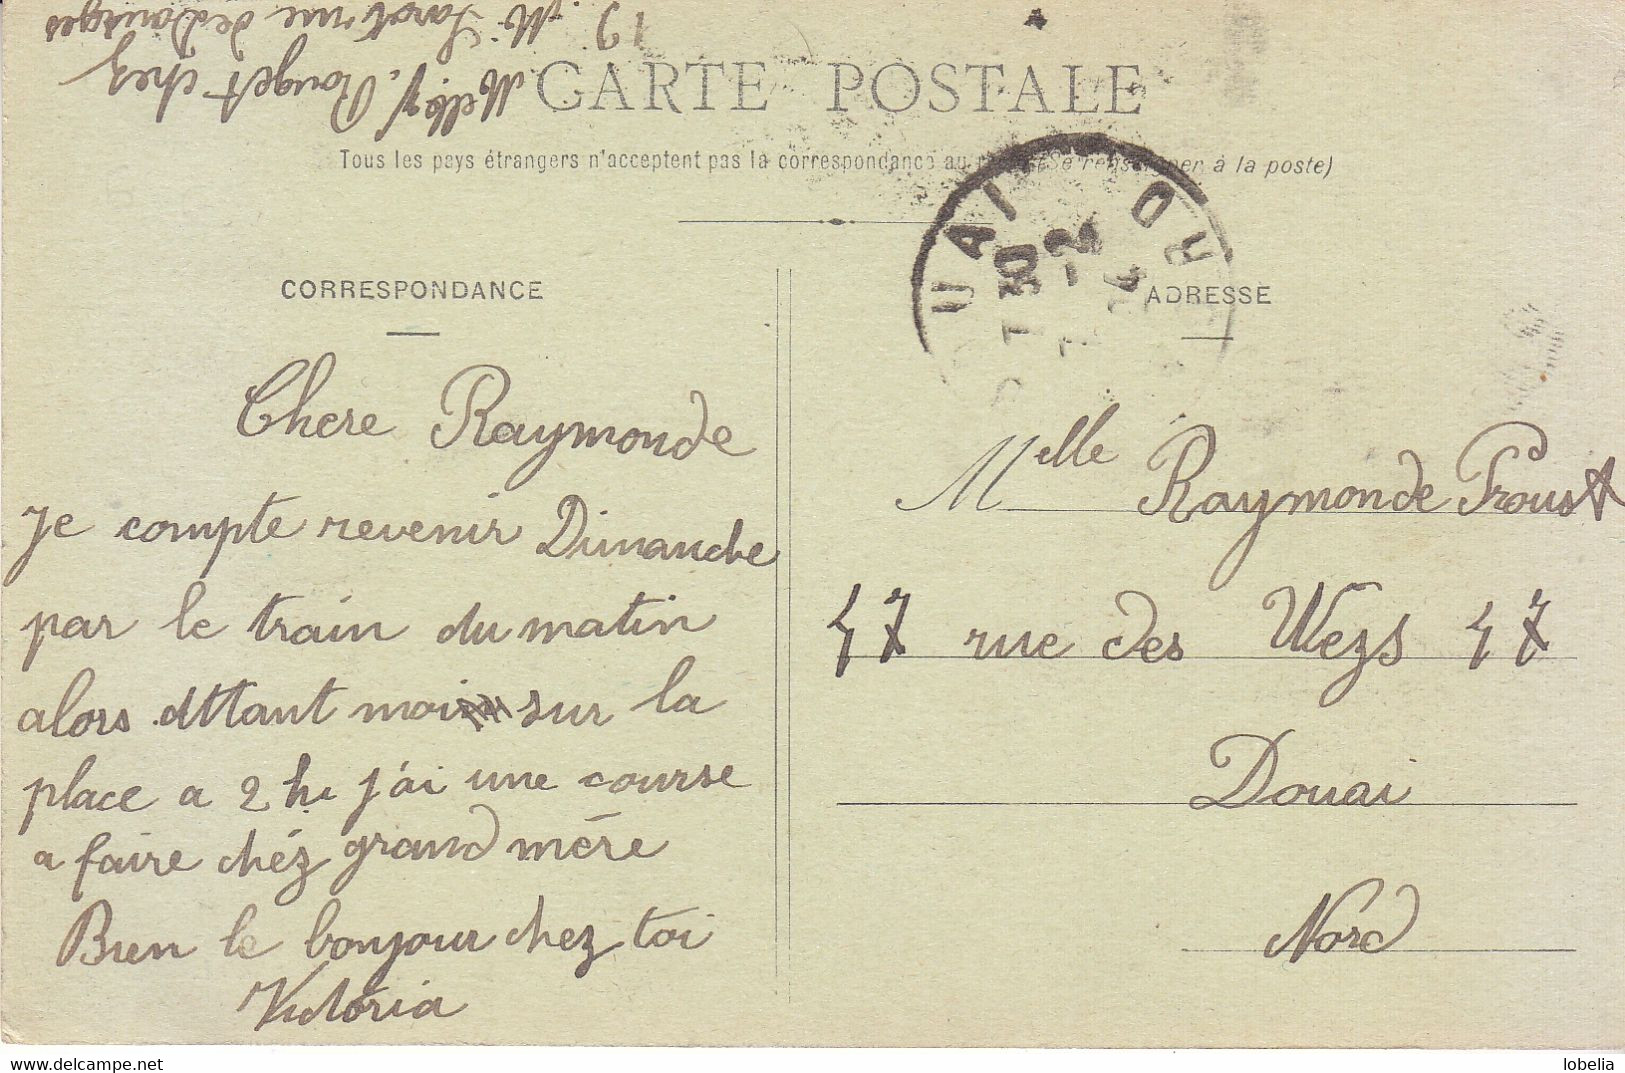 Melle V. Rouget chez
M. Sarot rue de Douges
19
CARTE POSTALE
Tous les pays étrangers n'acceptent pas la correspondance au (Se renseigner à la poste)
DOUAI NORD
7 30
-2
CORRESPONDANCE
ADRESSE
Chere Raymonde
Je compte revenir Dimanche
par le train du matin
alors attant moi sur la
place a 2 h j'ai une course
a faire chéz grand mére
Bien le bonjour chez toi
Victoria
Melle Raymonde Proust
47 rue des Wezs 47
Douai
Nord
https://www.delcampe.net
lobelia